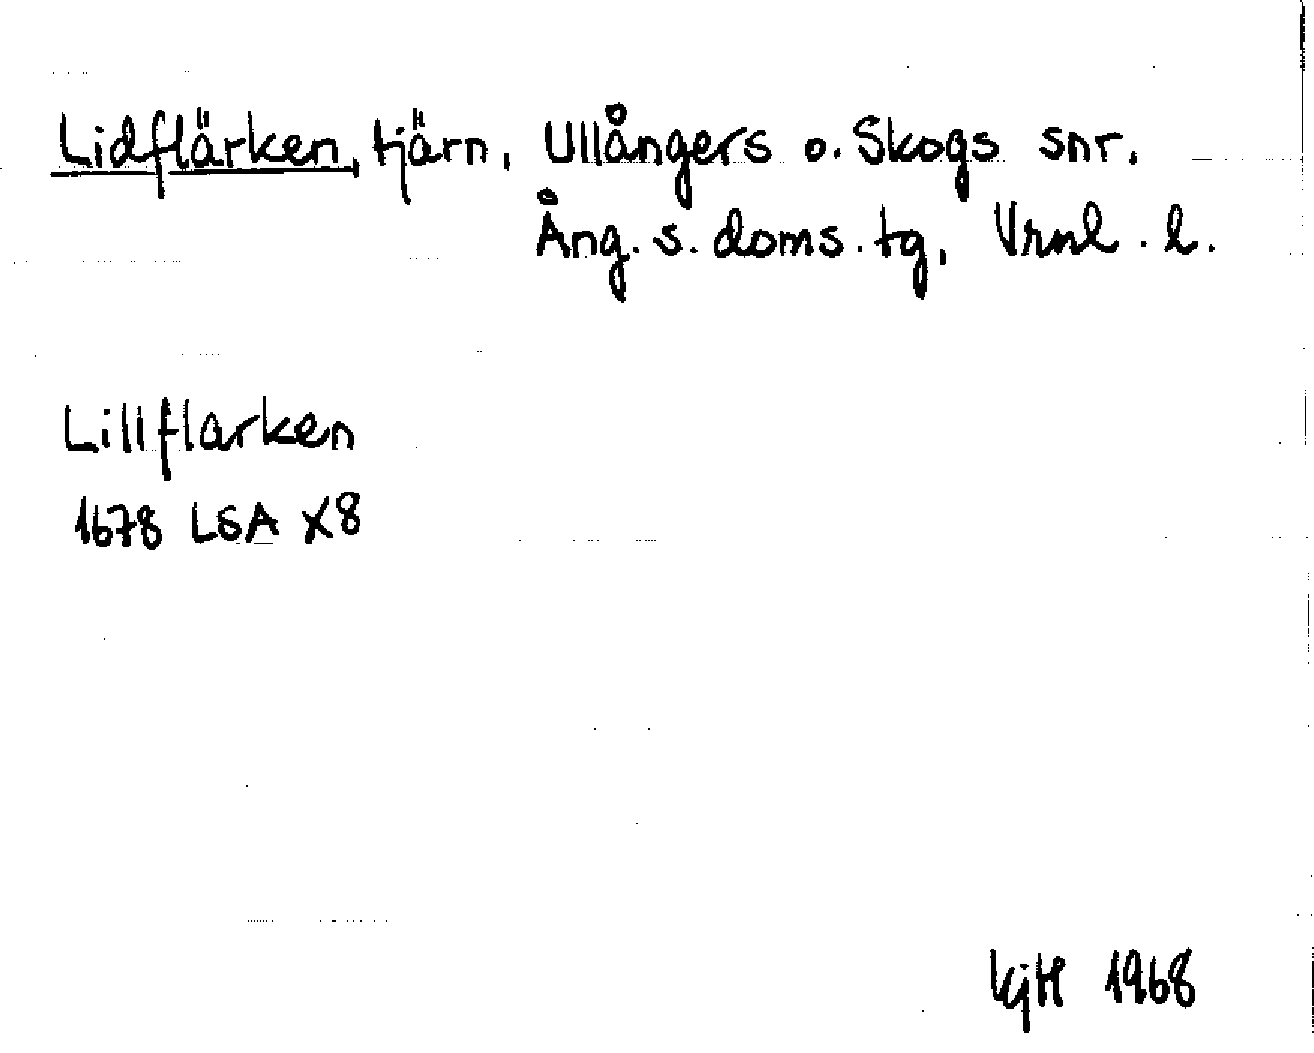 Lidflärken, tjärn, Ullångers o. Skogs snr.
Ång. s. doms. tg, Vrnl. l.
Lillflarken
1678 LSA X8
KjH 1968